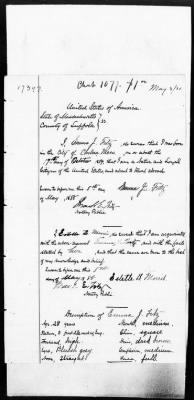 17347
May 9/88
United States of America.
State of Massachusetts
County of Suffolk
I, Emma J. Fitz, do swear that I was born
in the City of Chelsea Mass. on or about the
17th day of October 1859, that I am a Native and Loyal
Citizen of the United States, and about to travel abroad.
Sworn to before me this 5th day
of May 1888
Emma J. Fitz
Notary Public
I, Estelle D. Merrill, do swear that I am acquainted
with the above named Emma J. Fitz, and with the facts
stated by and that the same are true to the best
of my knowledge and belief.
Sworn to before me this
day of May
Estelle D. Merrill
Notary Public
Description of Emma J. Fitz
Age, 28 years
Mouth, medium,
Stature, 5
Chin, square
Forehead, high
Hair, dark brown
Eyes, Bluish gray
Complexion, medium
Nose, straight
Face, full